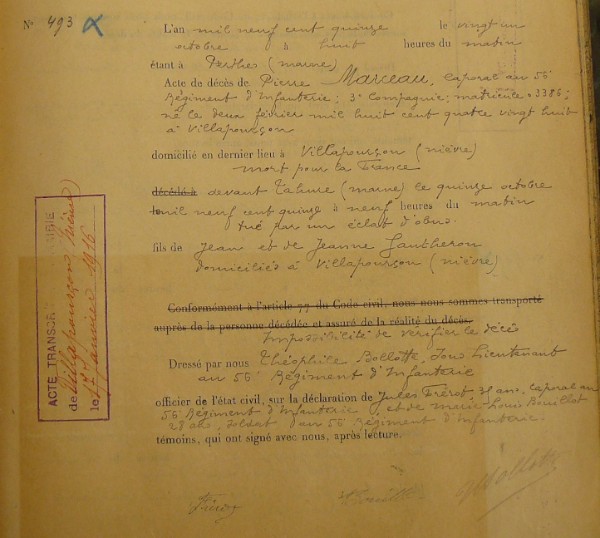 N° 493
L'an mil neuf cent quinze le vingt un
octobre à huit heures du matin
étant à Perthes (marne)
Acte de décès de Pierre Marceau, caporal au 56e
Régiment d'Infanterie; 3e Compagnie; matricule 03386;
né le deux février mil huit cent quatre vingt huit
à Villapourçon
domicilié en dernier lieu à Villapourçon (nièvre)
mort pour la France
décédé à devant Tahure (marne) le quinze octobre
le mil neuf cent quinze à neuf heures du matin
tué par un éclat d'obus.
fils de Jean et de Jeanne Gautheron
domiciliés à Villapourçon (nièvre)
Conformément à l'article 77 du Code civil, nous nous sommes transporté
auprès de la personne décédée et assuré de la réalité du décès.
Impossibilité de vérifier le décès
Dressé par nous Théophile Bollotte, Sous Lieutenant
au 56e Régiment d'Infanterie
officier de l'état civil, sur la déclaration de Jules Frérot, 31 ans, caporal au
56e Régiment d'Infanterie et de marie Louis Bouillot
28 ans, soldat au 56e Régiment d'Infanterie.
témoins, qui ont signé avec nous, après lecture.
Frérot
Bollotte
ACTE TRANSCRIT MAIRIE
de Villapourçon (Nièvre)
le 17 Janvier 1916